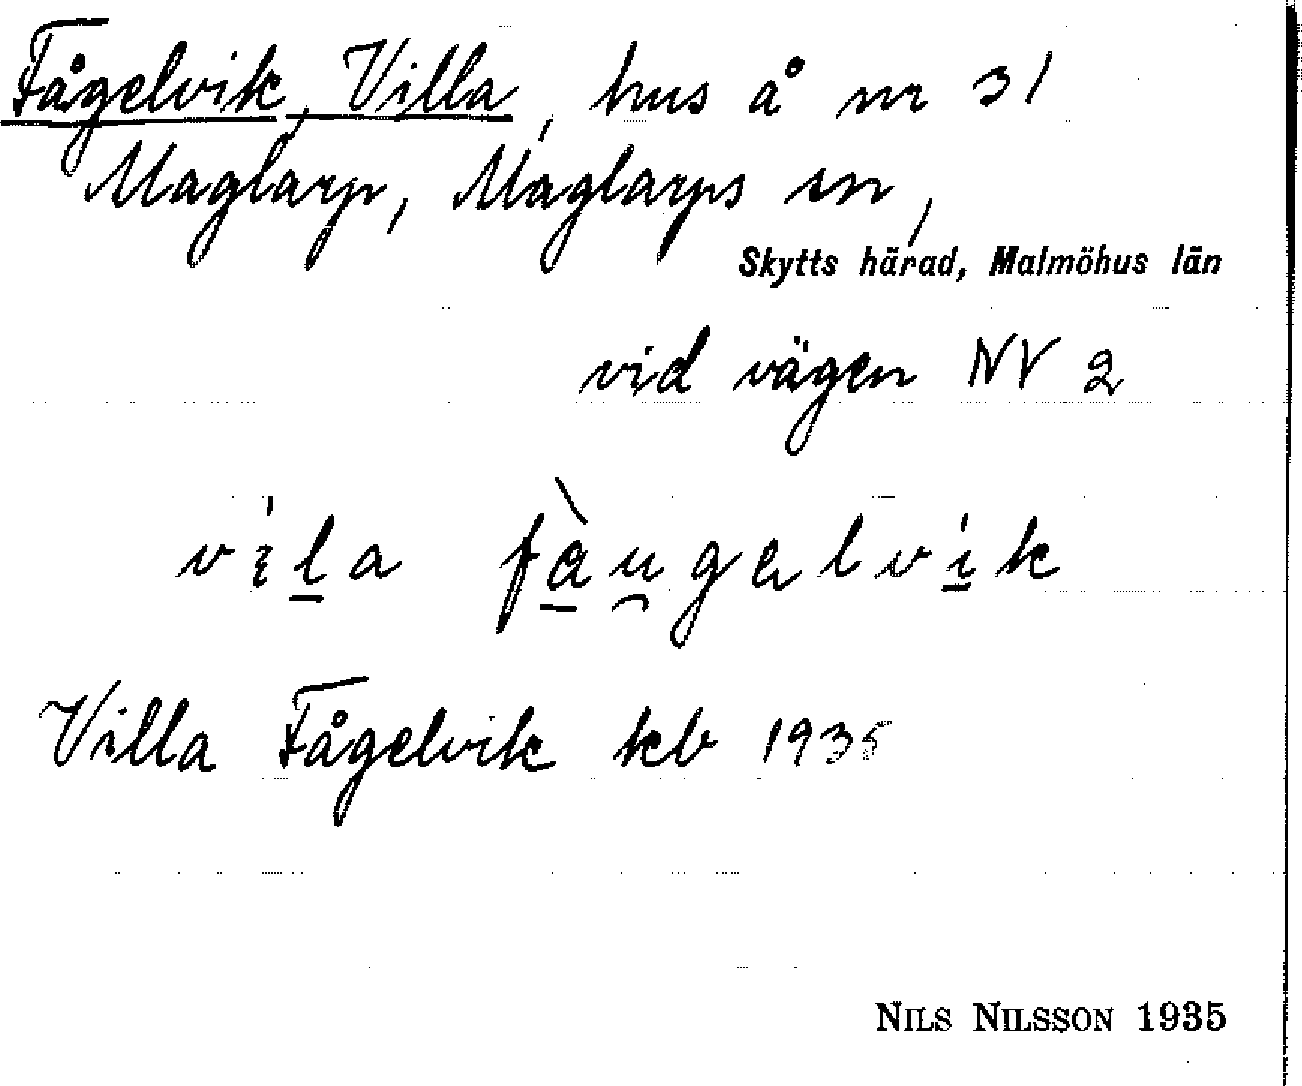 Fågelvik, Villa, hus å nr 31
Maglarp, Maglarps sn,
Skytts härad, Malmöhus län
vid vägen NV 2
Villa Fågelvik kb 1935
NILS NILSSON 1935